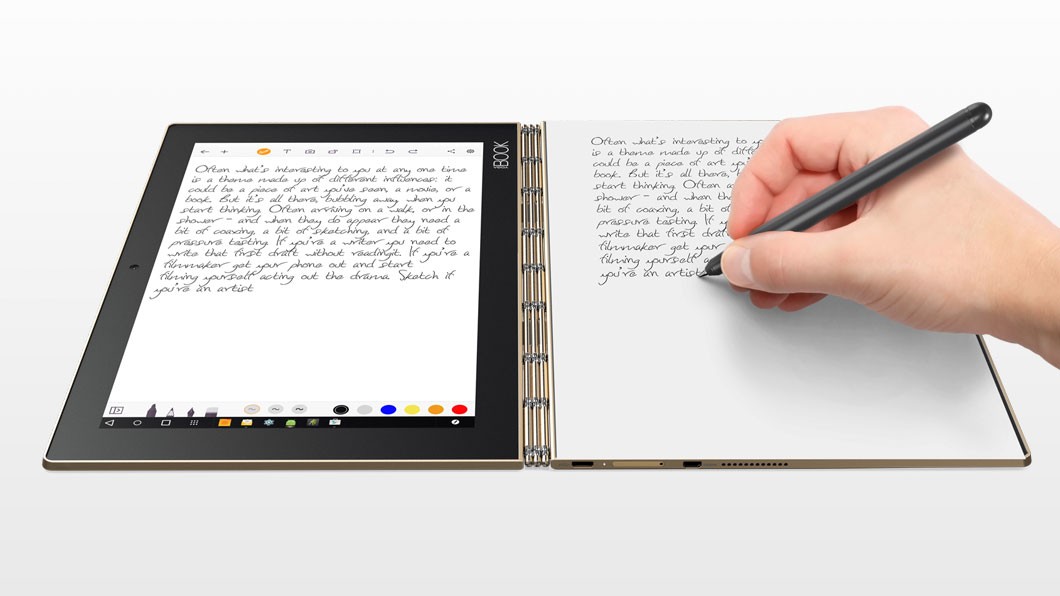 Often what's interesting to you at any one time
is a theme made up of different influences: it
could be a piece of art you've seen, a movie, or a
book. But it's all there, bubbling away when you
start thinking. Often arriving on a walk, or in the
shower - and when they do appear they need a
bit of coaxing, a bit of sketching, and a bit of
pressure testing. If you're a writer you need to
write that first draft without readingit. If you're a
filmmaker get your phone out and start
filming yourself acting out the drama. Sketch if
you're an artist
BOOK
Often what's interesting to yo
is a theme made up of diffe
could be a piece of art you'
book. But it's all there, b
start thinking. Often a
shower - and when the
bit of coaxing, a bit of
pressure testing. If y
write that first draft
filmmaker get your
filming yourself a
you're an artist